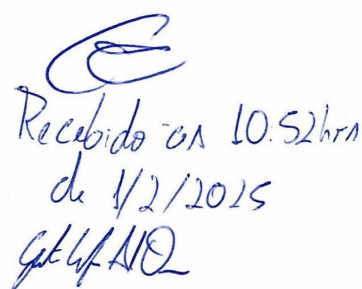 Recebido as 10:52hrs
de 1/2/2025